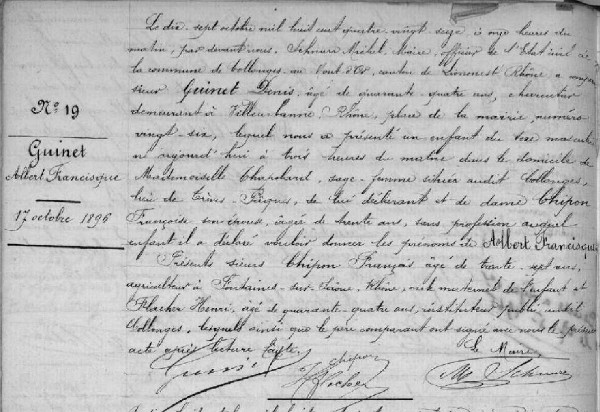 Nº 19
Guinet
Albert Francisque
17 octobre 1896
Le dix sept octobre mil huit cent quatre vingt seize à onze heures du
matin, par devant nous Michel, Maire, officier de l'Etat civil de
la commune de Collonges au Mont d'Or, canton de Limonest Rhône, a comparu
sieur Guinet Denis, âgé de quarante quatre ans,
demeurant à Villeurbanne Rhône, place de la mairie, numéro
vingt-six, lequel nous a présenté un enfant du sexe masculin
né aujourd'hui à trois heures du matin dans le domicile de
Mademoiselle sage-femme audit Collonges,
lieu de Trêves-Pâques, de lui déclarant et de dame Chipon
Françoise son épouse, âgée de trente ans, sans profession auquel
enfant il a déclaré vouloir donner les prénoms de Albert Francisque
Présents sieurs Chipon Français âgé de trente-sept ans,
agriculteur à Fontaines-sur-Saône, Rhône, oncle maternel de l'enfant et
Flocher Henri, âgé de quarante-quatre ans, instituteur public audit
Collonges, lesquels ainsi que le père comparant ont signé avec nous le présent
acte après lecture faite.
Le Maire
Guinet
chipon
Flocher